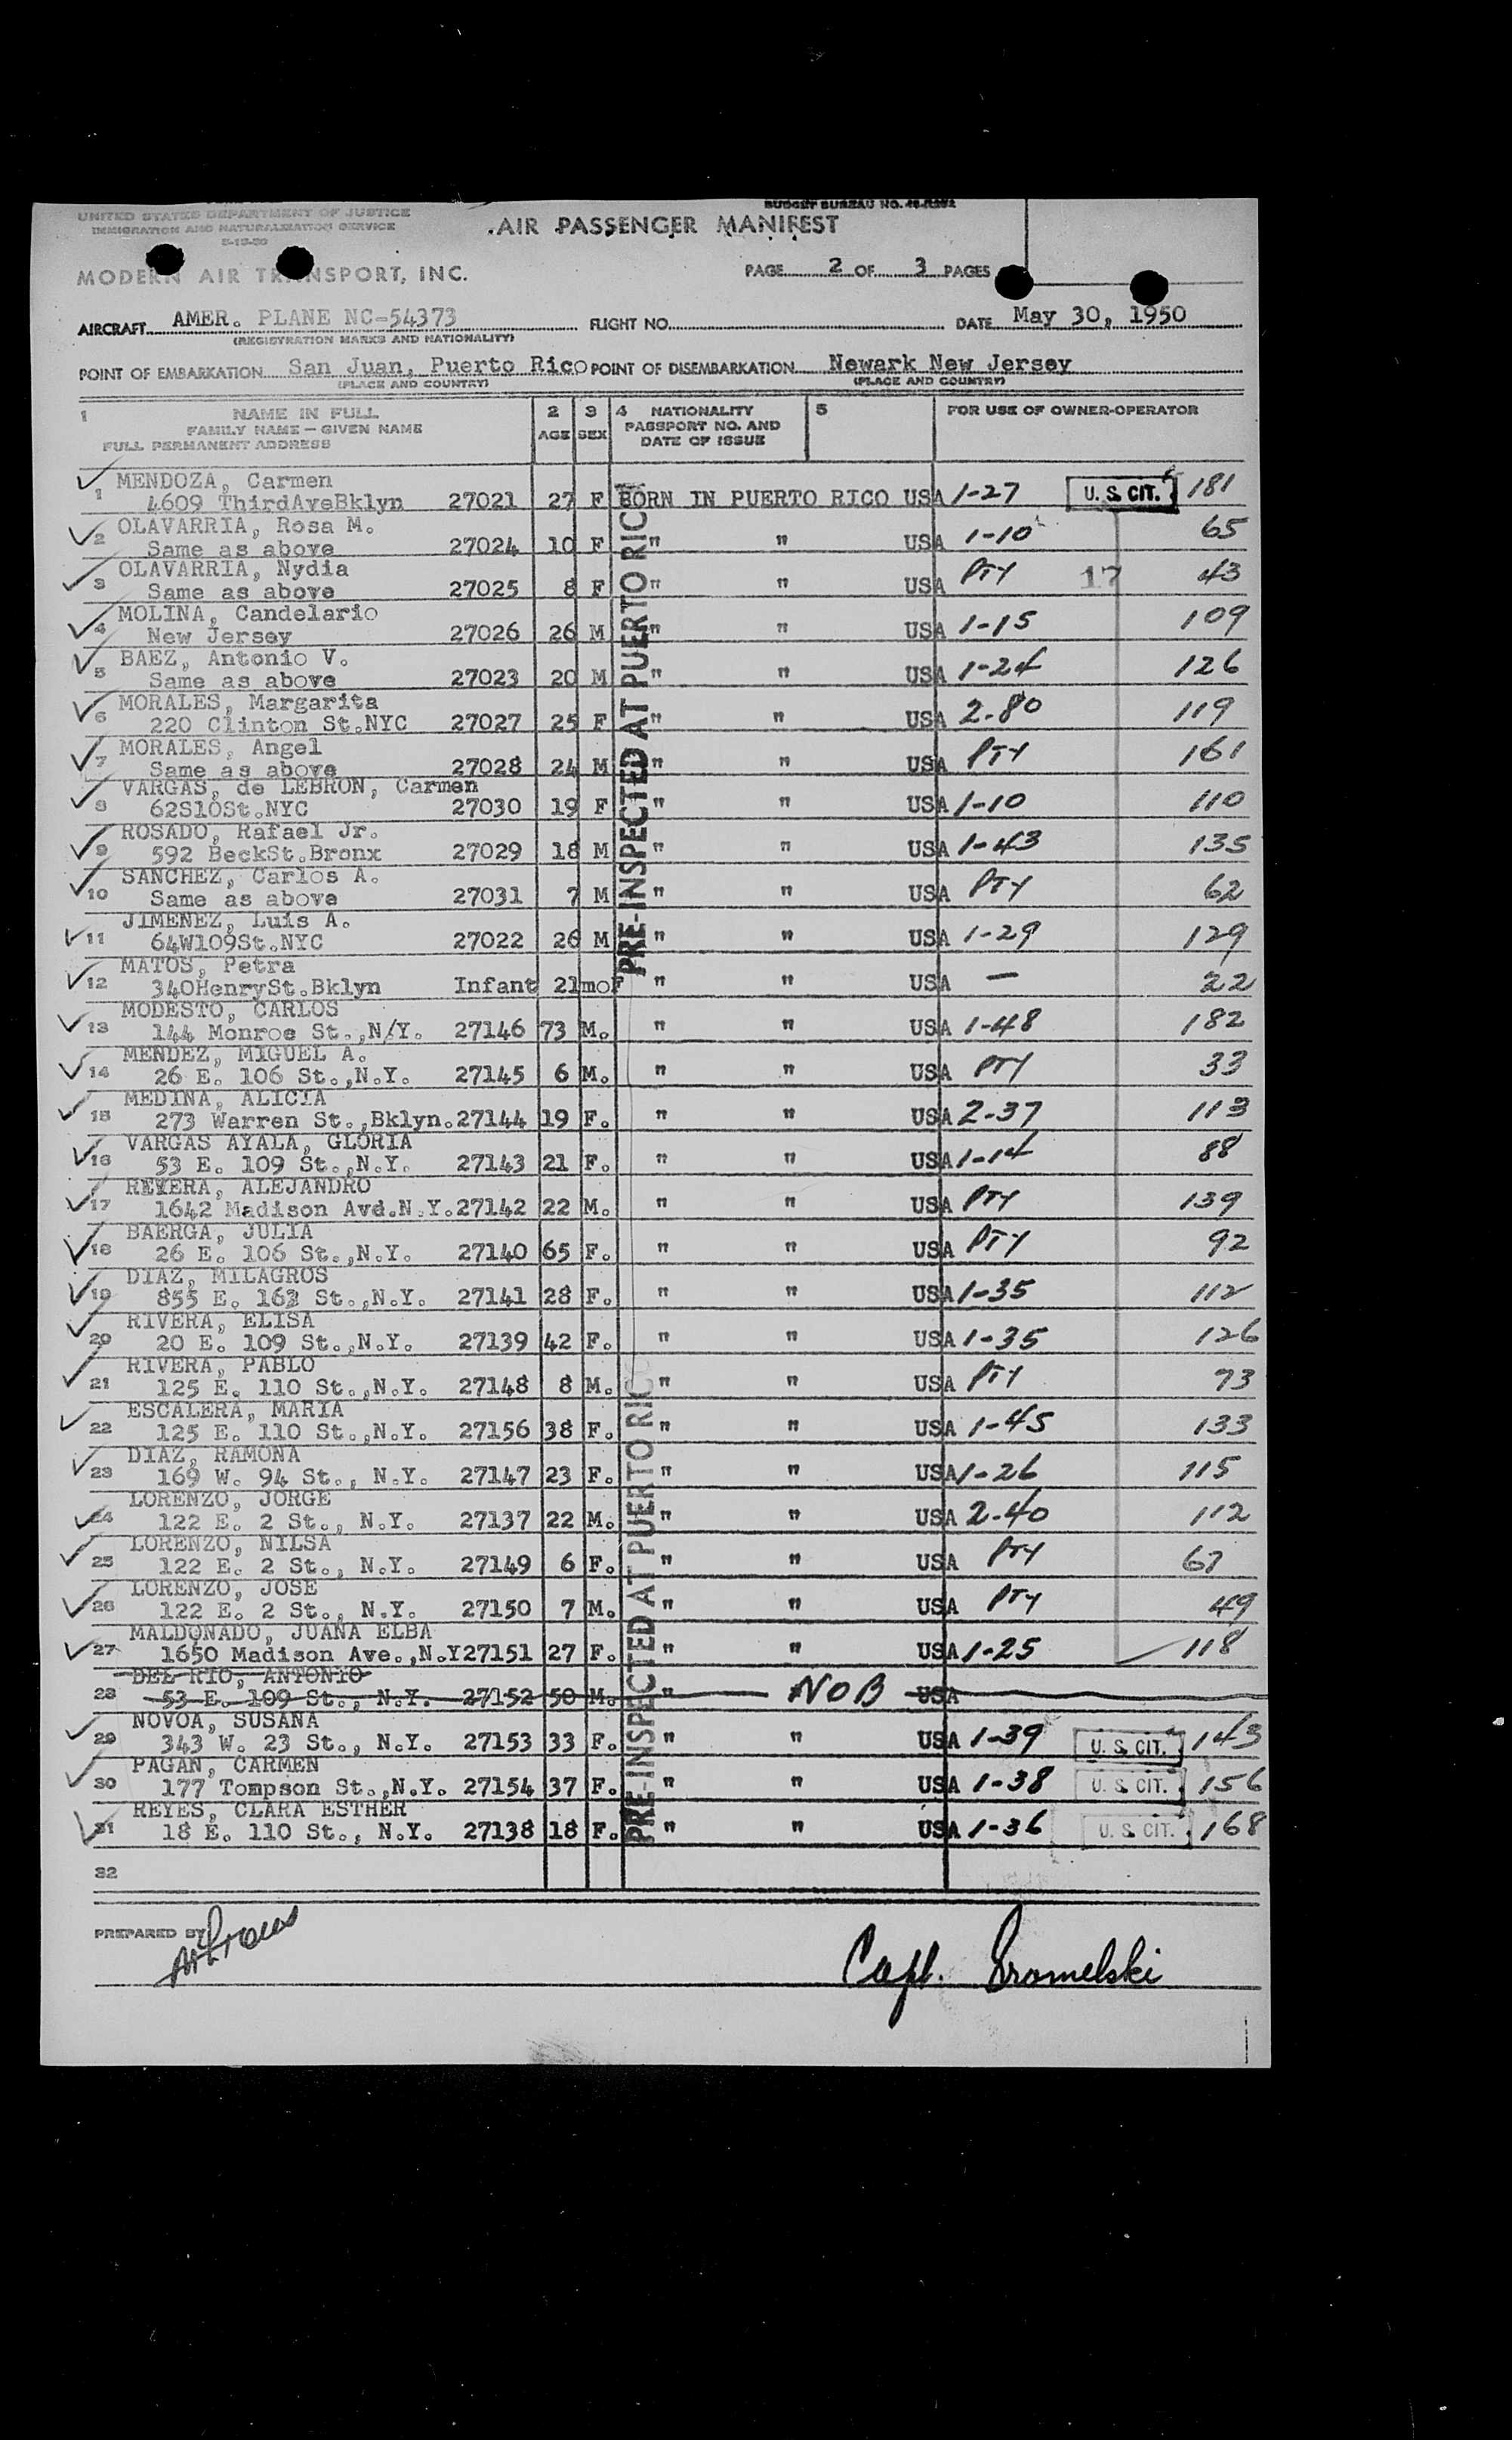 UNITED STATES DEPARTMENT OF JUSTICE
IMMIGRATION AND NATURALIZATION SERVICE
BUDGET BUREAU NO.
AIR PASSENGER MANIFEST
MODERN AIR TRANSPORT, INC.
PAGE 2 OF 3 PAGES
AIRCRAFT AMER. PLANE NC-54373 FLIGHT NO. DATE May 30, 1950
(REGISTRATION MARKS AND NATIONALITY)
POINT OF EMBARKATION San Juan, Puerto Rico POINT OF DISEMBARKATION Newark New Jersey
(PLACE AND COUNTRY) (PLACE AND COUNTRY)
1 NAME IN FULL 2 3 4 NATIONALITY 5 FOR USE OF OWNER-OPERATOR
FAMILY NAME — GIVEN NAME AGE SEX PASSPORT NO. AND
FULL PERMANENT ADDRESS DATE OF ISSUE
MENDOZA, Carmen
1 4609 ThirdAveBklyn 27021 27 F BORN IN PUERTO RICO USA 1-27 U. S. CIT. 181
OLAVARRIA, Rosa M.
2 Same as above 27024 10 F " " USA 1-10 65
OLAVARRIA, Nydia
3 Same as above 27025 8 F " " USA PTY 17 43
MOLINA, Candelario
4 New Jersey 27026 26 M " " USA 1-15 109
BAEZ, Antonio V.
5 Same as above 27023 20 M " " USA 1-24 126
MORALES, Margarita
6 220 Clinton St.NYC 27027 25 F " " USA 2-80 119
MORALES, Angel
7 Same as above 27028 24 M " " USA PTY 161
VARGAS, de LEBRON, Carmen
8 62S10St.NYC 27030 19 F " " USA 1-10 110
ROSADO, Rafael Jr.
9 592 BeckSt.Bronx 27029 18 M " " USA 1-43 135
SANCHEZ, Carlos A.
10 Same as above 27031 7 M " " USA PTY 62
JIMENEZ, Luis A.
11 64W109St.NYC 27022 26 M " " USA 1-29 129
MATOS, Petra
12 340HenrySt.Bklyn Infant 21moF " " USA — 22
MODESTO, CARLOS
13 144 Monroe St.,N/Y. 27146 73 M. " " USA 1-48 182
MENDEZ, MIGUEL A.
14 26 E. 106 St.,N.Y. 27145 6 M. " " USA PTY 33
MEDINA, ALICIA
15 273 Warren St.,Bklyn. 27144 19 F. " " USA 2-37 113
VARGAS AYALA, GLORIA
16 53 E. 109 St.,N.Y. 27143 21 F. " " USA 1-14 88
REVERA, ALEJANDRO
17 1642 Madison Avd.N.Y. 27142 22 M. " " USA PTY 139
BAERGA, JULIA
18 26 E. 106 St.,N.Y. 27140 65 F. " " USA PTY 92
DIAZ, MILAGROS
19 855 E. 163 St.,N.Y. 27141 28 F. " " USA 1-35 112
RIVERA, ELISA
20 20 E. 109 St.,N.Y. 27139 42 F. " " USA 1-35 126
RIVERA, PABLO
21 125 E. 110 St.,N.Y. 27148 8 M. " " USA PTY 73
ESCALERA, MARIA
22 125 E. 110 St.,N.Y. 27156 38 F. " " USA 1-45 133
DIAZ, RAMONA
23 169 W. 94 St., N.Y. 27147 23 F. " " USA 1-26 115
LORENZO, JORGE
24 122 E. 2 St., N.Y. 27137 22 M. " " USA 2-40 112
LORENZO, NILSA
25 122 E. 2 St., N.Y. 27149 6 F. " " USA PTY 67
LORENZO, JOSE
26 122 E. 2 St., N.Y. 27150 7 M. " " USA PTY 49
MALDONADO, JUANA ELBA
27 1650 Madison Ave.,N.Y 27151 27 F. " " USA 1-25 118
DEL RIO, ANTONIO
28 53 E. 109 St., N.Y. 27152 50 M. " NOB USA
NOVOA, SUSANA
29 343 W. 23 St., N.Y. 27153 33 F. " " USA 1-39 U. S. CIT. 143
PAGAN, CARMEN
30 177 Tompson St.,N.Y. 27154 37 F. " " USA 1-38 U. S. CIT. 156
REYES, CLARA ESTHER
31 18 E. 110 St., N.Y. 27138 18 F. " " USA 1-36 U. S. CIT. 168
32
PRE-INSPECTED AT PUERTO RICO
PRE-INSPECTED AT PUERTO RICO
PREPARED BY
Capt.